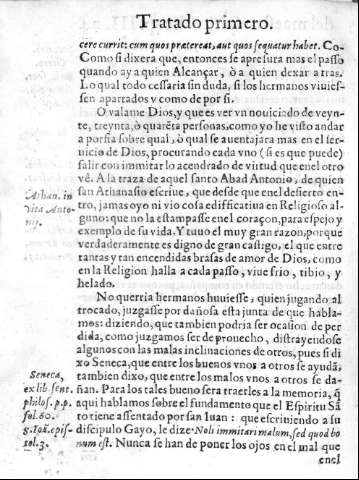 Tratado primero.
cere currit: cum quos prætereat, aut quos sequatur habet. Co-
Como si dixera que, entonces se apresura mas el passo
quando ay a quien Alcançar, ò a quien dexar atras.
Lo qual todo cessaria sin duda, si los hermanos viuies-
sen apartados y como de por si.
O valame Dios, y que es ver vn nouiciado de veyn-
te, treynta, ò quarēta personas, como yo he visto andar
a porfia sobre qual, ò qual se auentajara mas en el ser-
uicio de Dios, procurando cada vno (si es que puede)
salir con immitar lo acendrado de virtud que en el otro
vè. A la traza de aquel santo Abad Antonio, de quien
san Athanasio escriue, que desde que en el desierto en-
tro, jamas oyo ni vio cosa edifficatiua en Religioso al-
guno: que no la estampasse en el coraçon, para espejo y
exemplo de su vida. Y tuuo el muy gran razon, porque
verdaderamente es digno de gran castigo, el que entre
tantas y tan encendidas brasas de amor de Dios, como
en la Religion halla a cada passo, viue frio, tibio, y
helado.
Athan. in
vita Anto-
nij.
No querria hermanos huuiesse, quien jugando al
trocado, juzgasse por dañosa esta junta de que habla-
mos: diziendo, que tambien podria ser ocasion de per
dida, como juzgamos ser de prouecho, distrayendose
algunos con las malas inclinaciones de otros, pues si di
xo Seneca, que entre los buenos vnos a otros se ayudā,
tambien dixo, que entre los malos vnos a otros se da-
ñan. Para los tales bueno sera traerles a la memoria, q̃
aqui hablamos sobre el fundamento que el Espiritu Sā
to tiene assentado por san Iuan: que escriuiendo a su
discipulo Gayo, le dize Noli immitari malum, sed quod bo
num est. Nunca se han de poner los ojos en el mal que
Seneca,
ex lib sent.
philos. p.p.
fol. 60.
3. Ioā. epis-
tol. 3.
en el